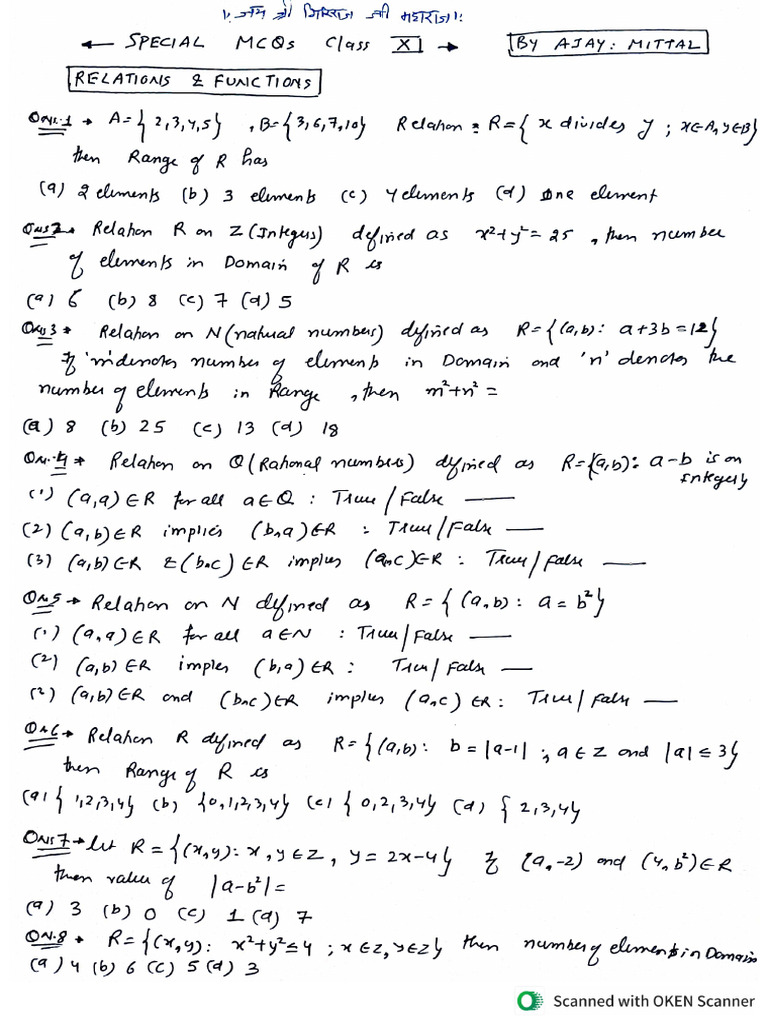 ।. जय श्री गिरिराज जी महाराज।.
← SPECIAL MCQs Class XI → BY AJAY: MITTAL
RELATIONS & FUNCTIONS
Ons.1 → A={2,3,4,5} , B={3,6,7,10} Relation: R={x divides y ; x∈A, y∈B}
then Range of R has
(a) 2 elements (b) 3 elements (c) 4 elements (d) one element
Ons2 → Relation R on Z (Integers) defined as x²+y²=25 , then number
of elements in Domain of R is
(a) 6 (b) 8 (c) 7 (d) 5
Ons3 → Relation on N (natural numbers) defined as R={(a,b): a+3b=12}
If 'm' denotes number of elements in Domain and 'n' denotes the
number of elements in Range , then m²+n² =
(a) 8 (b) 25 (c) 13 (d) 18
On.4 → Relation on Q (Rational numbers) defined as R={(a,b): a-b is an
Integer}
(1) (a,a)∈R for all a∈Q : True/False ——
(2) (a,b)∈R implies (b,a)∈R : True/False ——
(3) (a,b)∈R & (b,c)∈R implies (a,c)∈R : True/False ——
On5 → Relation on N defined as R={(a,b): a=b²}
(1) (a,a)∈R for all a∈N : True/False ——
(2) (a,b)∈R implies (b,a)∈R : True/False ——
(2) (a,b)∈R and (b,c)∈R implies (a,c)∈R : True/False ——
On6 → Relation R defined as R={(a,b): b=|a-1| ; a∈Z and |a|≤3}
then Range of R is
(a) {1,2,3,4} (b) {0,1,2,3,4} (c) {0,2,3,4} (d) {2,3,4}
Ons7 → let R={(x,y): x,y∈Z, y=2x-4} If (a,-2) and (4,b²)∈R
then value of |a-b²|=
(a) 3 (b) 0 (c) 1 (d) 7
On.8 → R={(x,y): x²+y²≤4 ; x∈Z, y∈Z} then number of elements in Domain
(a) 4 (b) 6 (c) 5 (d) 3
Scanned with OKEN Scanner